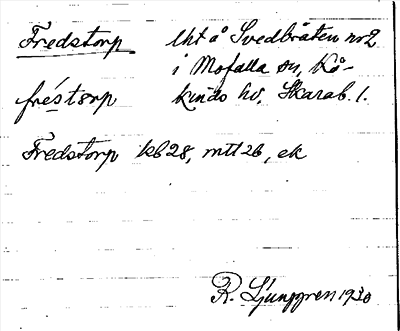 Fredstorp lht å Svedbråten nr 2
i Mofalla sn, Kå-
fréstorp kinds hd, Skarab. l.
Fredstorp kb 28, mtl 26, ek
R. Ljunggren 1930